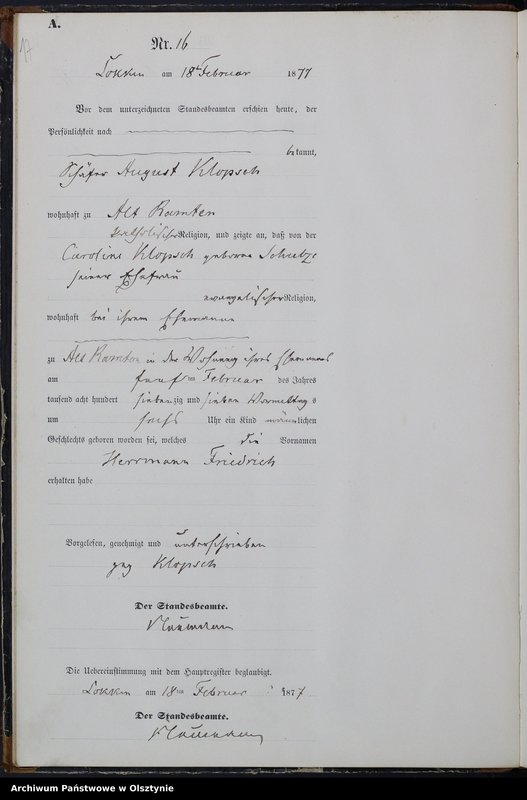 A.
17
Nr. 16
Lokken am 18t Februar 1877
Vor dem unterzeichneten Standesbeamten erschien heute, der
Persönlichkeit nach
bekannt,
Schäfer August Klopsch
wohnhaft zu Alt Ramten
katholischer Religion, und zeigte an, daß von der
Caroline Klopsch geborne Schulze
seiner Ehefrau
evangelischer Religion,
wohnhaft bei ihrem Ehemanne
zu Alt Ramten in der Wohnung ihres Ehemannes
am fünften Februar des Jahres
tausend acht hundert siebenzig und sieben Vormittags
um sechs Uhr ein Kind männlichen
Geschlechts geboren worden sei, welches die Vornamen
Herrmann Friedrich
erhalten habe
Vorgelesen, genehmigt und unterschrieben
gez Klopsch
Der Standesbeamte.
Die Uebereinstimmung mit dem Hauptregister beglaubigt.
Lokken am 18ten Februar 1877
Der Standesbeamte.
Archiwum Państwowe w Olsztynie